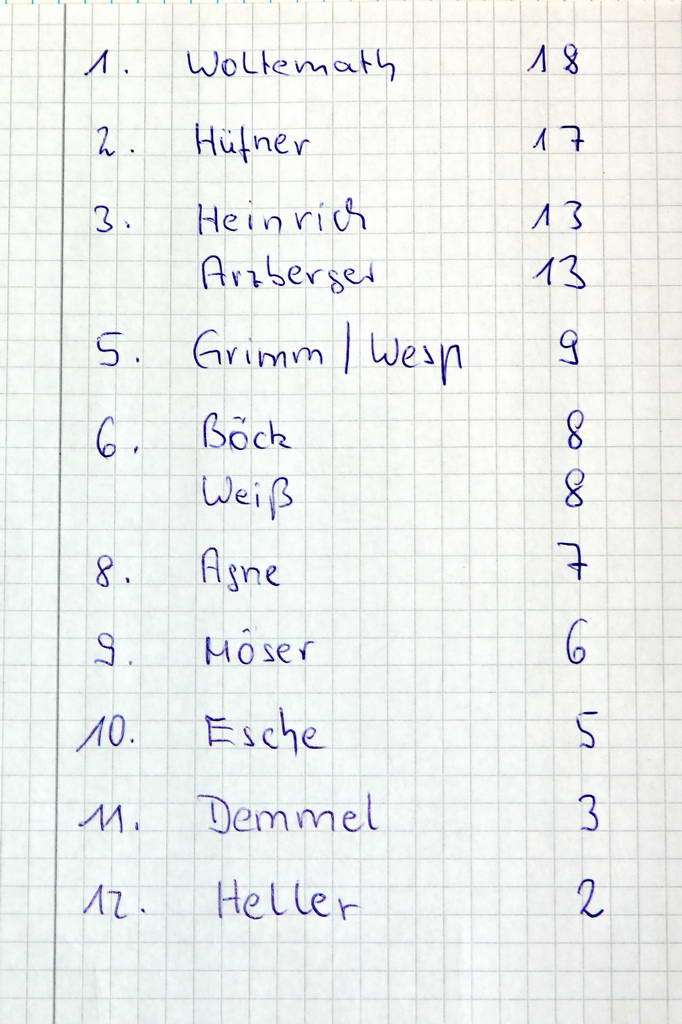 1. Woltemath 18
2. Hüfner 17
3. Heinrich 13
Arzberger 13
5. Grimm / Wesp 9
6. Böck 8
Weiß 8
8. Agne 7
9. Möser 6
10. Esche 5
11. Demmel 3
12. Heller 2